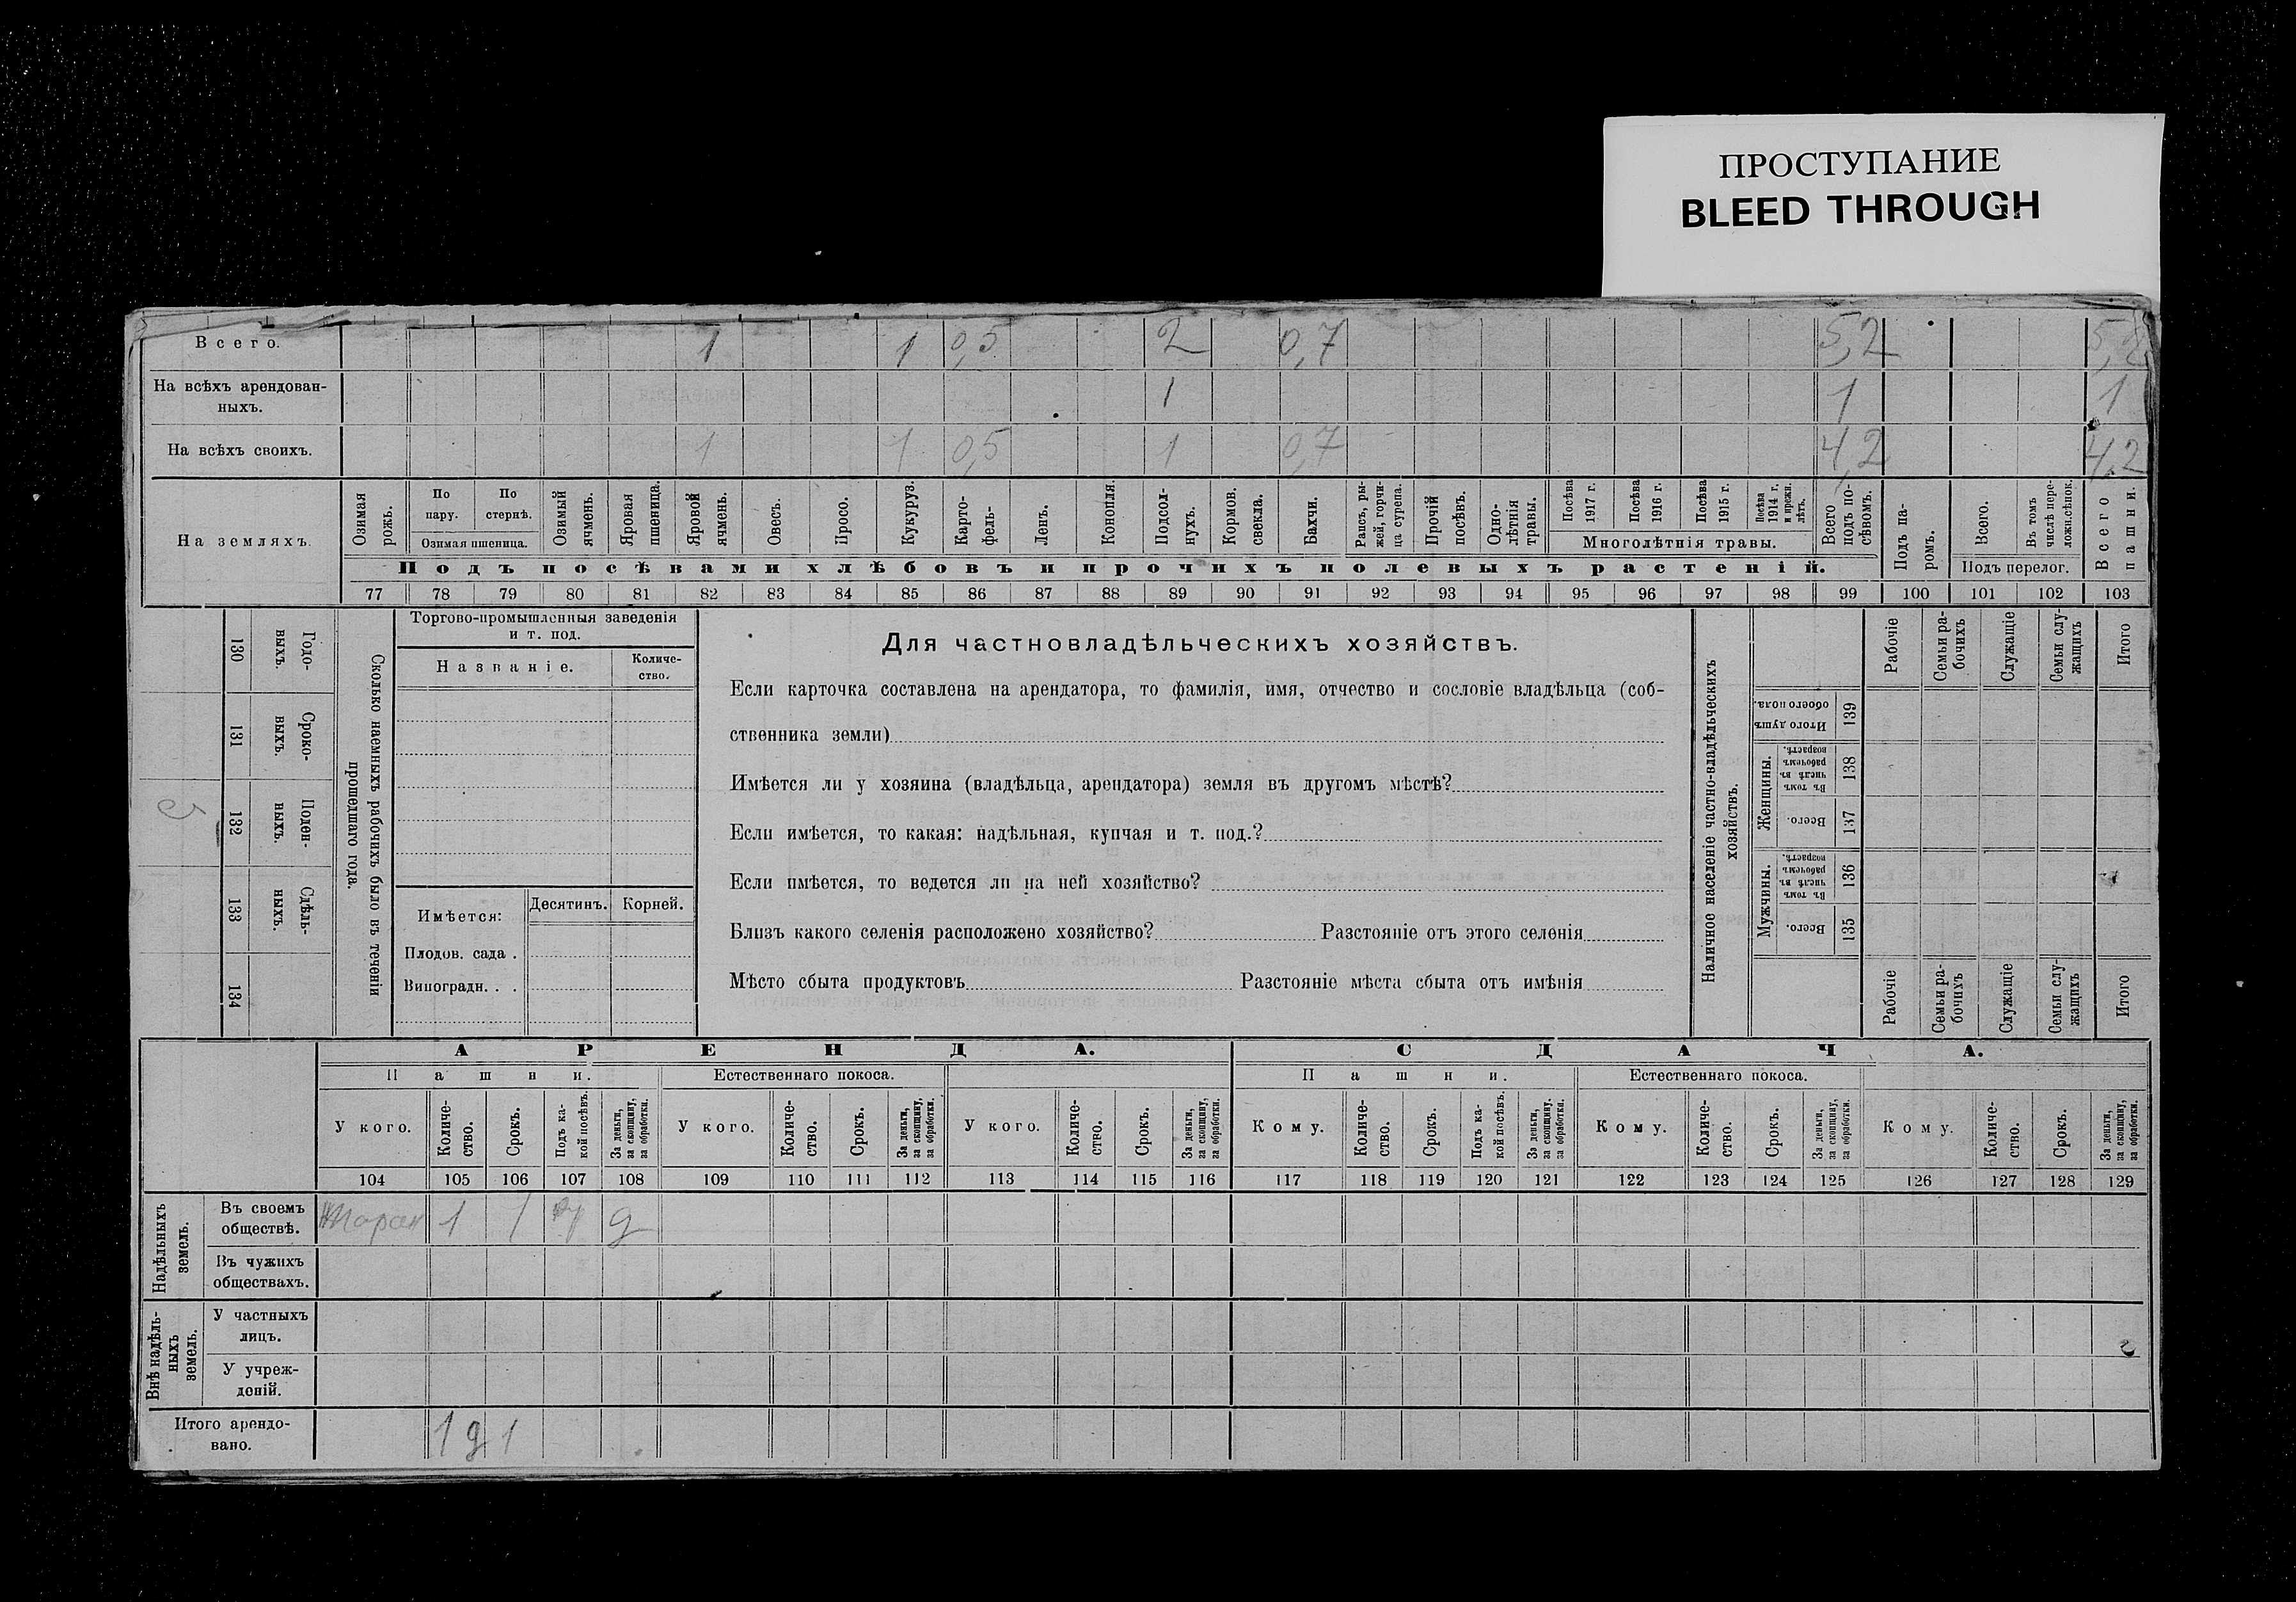 ПРОСТУПАНИЕ
BLEED THROUGH
Всего. 1 1 0,5 2 0,7 5,2 5,2
На всѣхъ арендованныхъ. 1 1 1
На всѣхъ своихъ. 1 1 0,5 1 0,7 4,2 4,2
На земляхъ.
Озимая рожь.
По пару.
По стернѣ.
Озимая пшеница.
Озимый ячмень.
Яровая пшеница.
Яровой ячмень.
Овесъ.
Просо.
Кукуруз.
Карто-фель-
Ленъ.
Конопля.
Подсол-нухъ.
Кормов. свекла.
Бахчи.
Рапсъ, ры-жей, горчи-ца сурепа.
Прочій посѣвъ.
Одно-лѣтнія травы.
Посѣва 1917 г.
Посѣва 1916 г.
Посѣва 1915 г.
Посѣва 1914 г. и прежн. лѣтъ.
Многолѣтнія травы.
Всего подъ по-сѣвомъ.
Подъ па-ромъ.
Всего.
Въ томъ числѣ пере-ложн.сѣнок.
Подъ перелог.
Всего пашни.
Подъ посѣвами хлѣбовъ и прочихъ полевыхъ растеній.
77 78 79 80 81 82 83 84 85 86 87 88 89 90 91 92 93 94 95 96 97 98 99 100 101 102 103
130 Годо-выхъ.
131 Сроко-выхъ.
132 Поден-ныхъ.
133 Сдѣль-ныхъ.
134
Сколько наемныхъ рабочихъ было въ теченіи
прошедшаго года.
Торгово-промышленныя заведенія
и т. под.
Названіе.
Количе-ство.
Имѣется:
Десятинъ.
Корней.
Плодов. сада .
Виноградн. . .
Для частновладѣльческихъ хозяйствъ.
Если карточка составлена на арендатора, то фамилія, имя, отчество и сословіе владѣльца (соб-
ственника земли)
Имѣется ли у хозяина (владѣльца, арендатора) земля въ другомъ мѣстѣ?
Если имѣется, то какая: надѣльная, купчая и т. под.?
Если имѣется, то ведется ли на ней хозяйство?
Близъ какого селенія расположено хозяйство? Разстояніе отъ этого селенія
Мѣсто сбыта продуктовъ Разстояніе мѣста сбыта отъ имѣнія
Наличное населеніе частно-владѣльческихъ
хозяйствъ.
Рабочіе
Семьи ра-бочихъ
Служащіе
Семьи слу-жащихъ
Итого
Итого душъ обоего пола. 139
Женщины.
Въ томъ числѣ въ рабочемъ возрастѣ. 138
Всего. 137
Мужчины.
Въ томъ числѣ въ рабочемъ возрастѣ. 136
Всего. 135
Рабочіе
Семьи ра-бочихъ
Служащіе
Семьи слу-жащихъ
Итого
АРЕНДА.
СДАЧА.
Пашни.
Естественнаго покоса.
Пашни.
Естественнаго покоса.
У кого.
Количе-ство.
Срокъ.
Подъ ка-кой посѣвъ.
За деньги, за скопщину, за обработки.
У кого.
Количе-ство.
Срокъ.
За деньги, за скопщину, за обработки.
У кого.
Количе-ство.
Срокъ.
За деньги, за скопщину, за обработки.
Кому.
Количе-ство.
Срокъ.
Подъ ка-кой посѣвъ.
За деньги, за скопщину. за обработки.
Кому.
Количе-ство.
Срокъ.
За деньги, за скопщину, за обработки.
Кому.
Количе-ство.
Срокъ.
За деньги, за скопщину, за обработки.
104 105 106 107 108 109 110 111 112 113 114 115 116 117 118 119 120 121 122 123 124 125 126 127 128 129
Надѣльныхъ земель.
Въ своемъ обществѣ. 1 1 д
Въ чужихъ обществахъ.
Внѣ надѣль-ныхъ земель.
У частныхъ лицъ.
У учреж-деній.
Итого арендо-вано. 1 д 1